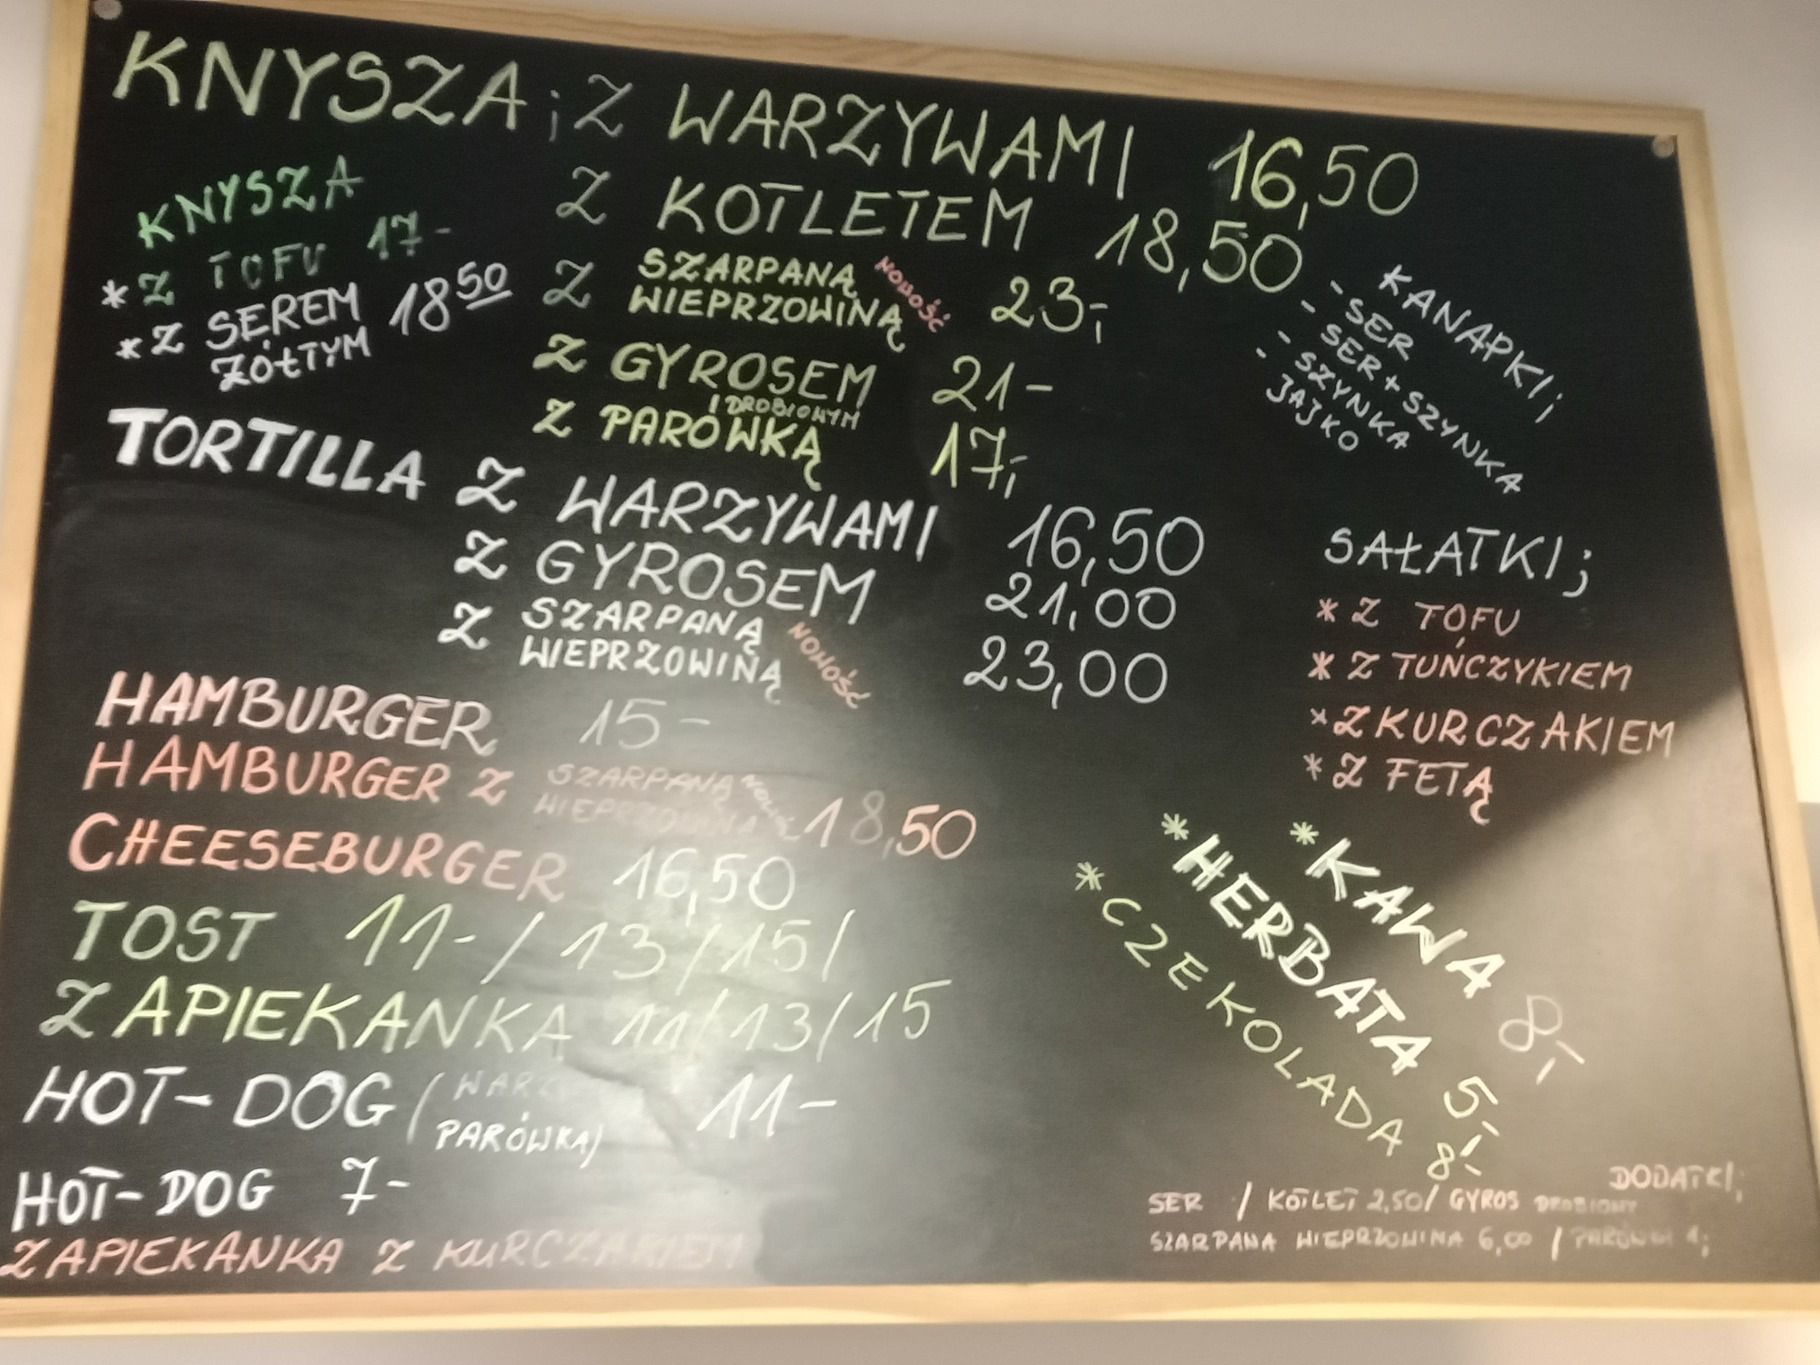 KNYSZA; Z WARZYWAMI 16,50
Z KOTLETEM 18,50
Z SZARPANĄ
WIEPRZOWINĄ NOWOŚĆ 23,-
Z GYROSEM 21-
DROBIOWYM
Z PARÓWKĄ 17,-
KNYSZA
*Z TOFU 17-
*Z SEREM 18 50
ŻÓŁTYM
TORTILLA Z WARZYWAMI 16,50
Z GYROSEM 21,00
Z SZARPANĄ
WIEPRZOWINĄ NOWOŚĆ 23,00
HAMBURGER 15-
HAMBURGER Z SZARPANĄ
WIEPRZOWINĄ 18,50
CHEESEBURGER 16,50
TOST 11-/13/15/
ZAPIEKANKA 11/13/15
HOT-DOG (
PARÓWKA) 11-
HOT-DOG 7-
ZAPIEKANKA Z KURCZAKIEM
KANAPKI;
- SER
- SER+SZYNKA
- SZYNKA
- JAJKO
SAŁATKI;
* Z TOFU
* Z TUŃCZYKIEM
* Z KURCZAKIEM
* Z FETĄ
* KAWA 8,-
* HERBATA 5,-
* CZEKOLADA 8,-
DODATKI;
SER / KOTLET 2,50/ GYROS DROBIOWY
SZARPANA WIEPRZOWINA 6,00 /